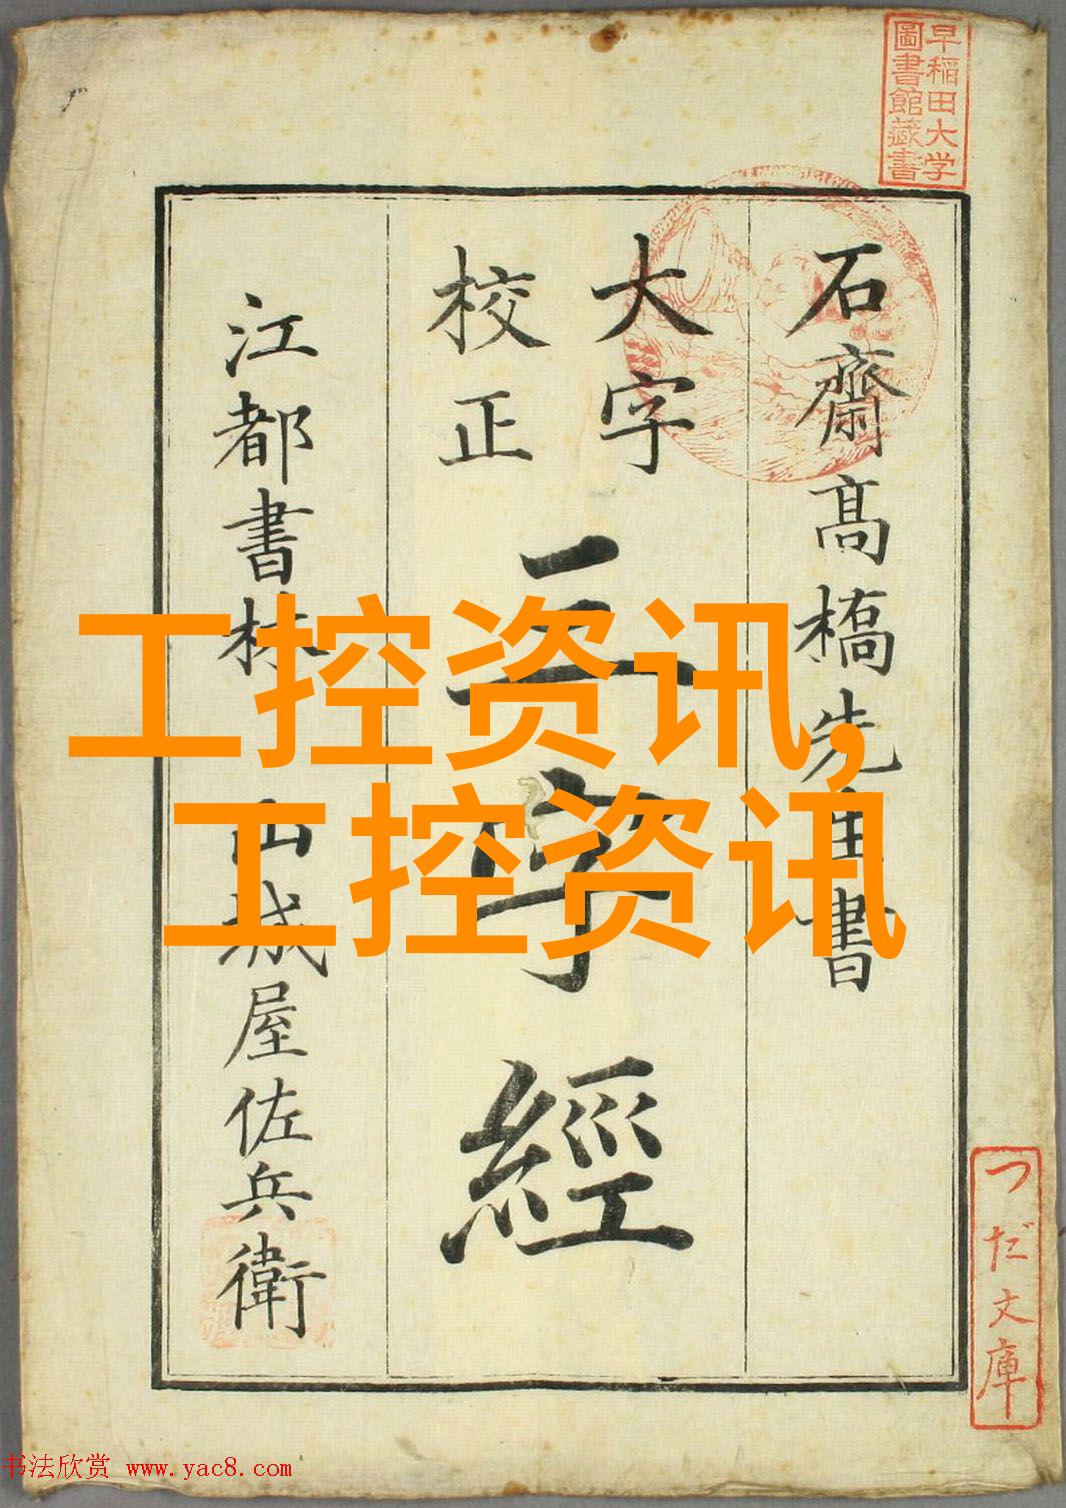 早稲田大学
圖書館藏書
石齋髙橋先生書
大字
校正
三字經
江都書林 山城屋佐兵衛
工控资讯,
工控资讯
つだ文庫
书法欣赏 www.yac8.com